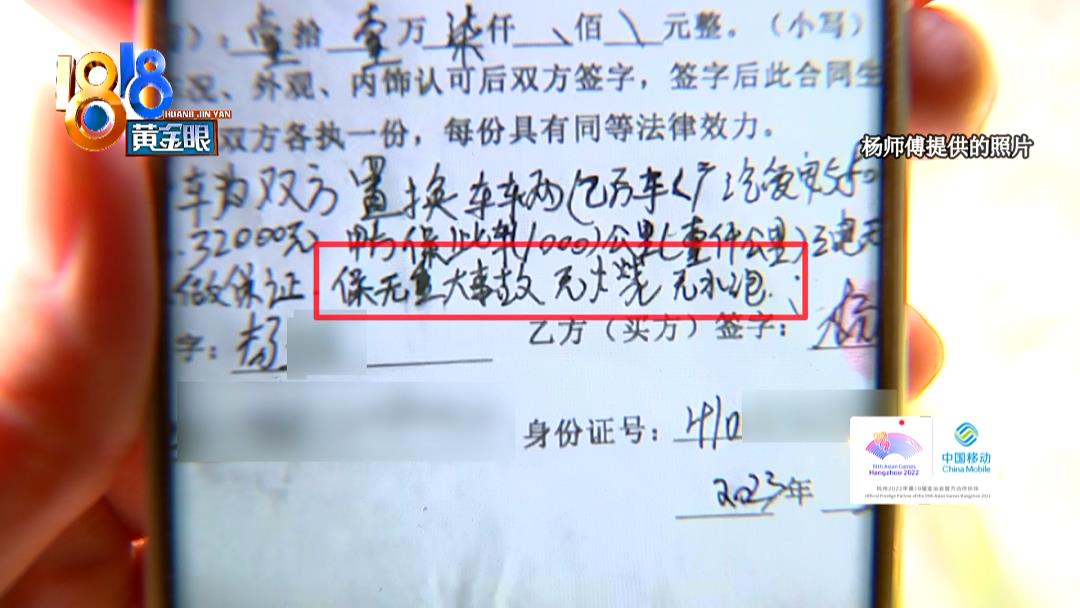 壹拾壹万柒仟 佰 元整。（小写）
况、外观、内饰认可后双方签字，签字后此合同生
1818
HUANG JIN YAN
黄金眼
双方各执一份，每份具有同等法律效力。
杨师傅提供的照片
车为双方置换车车两
.32000元 甲方保此车(1000)公里(壹仟公里)
做保证.保无重大事故 无火烧 无水泡.
字：杨
乙方（买方）签字：
身份证号：410
2023年
19th Asian Games
Hangzhou 2022
中国移动
China Mobile
杭州2022年第19届亚运会官方合作伙伴
Official Prestige Partner of the 19th Asian Games Hangzhou 2022